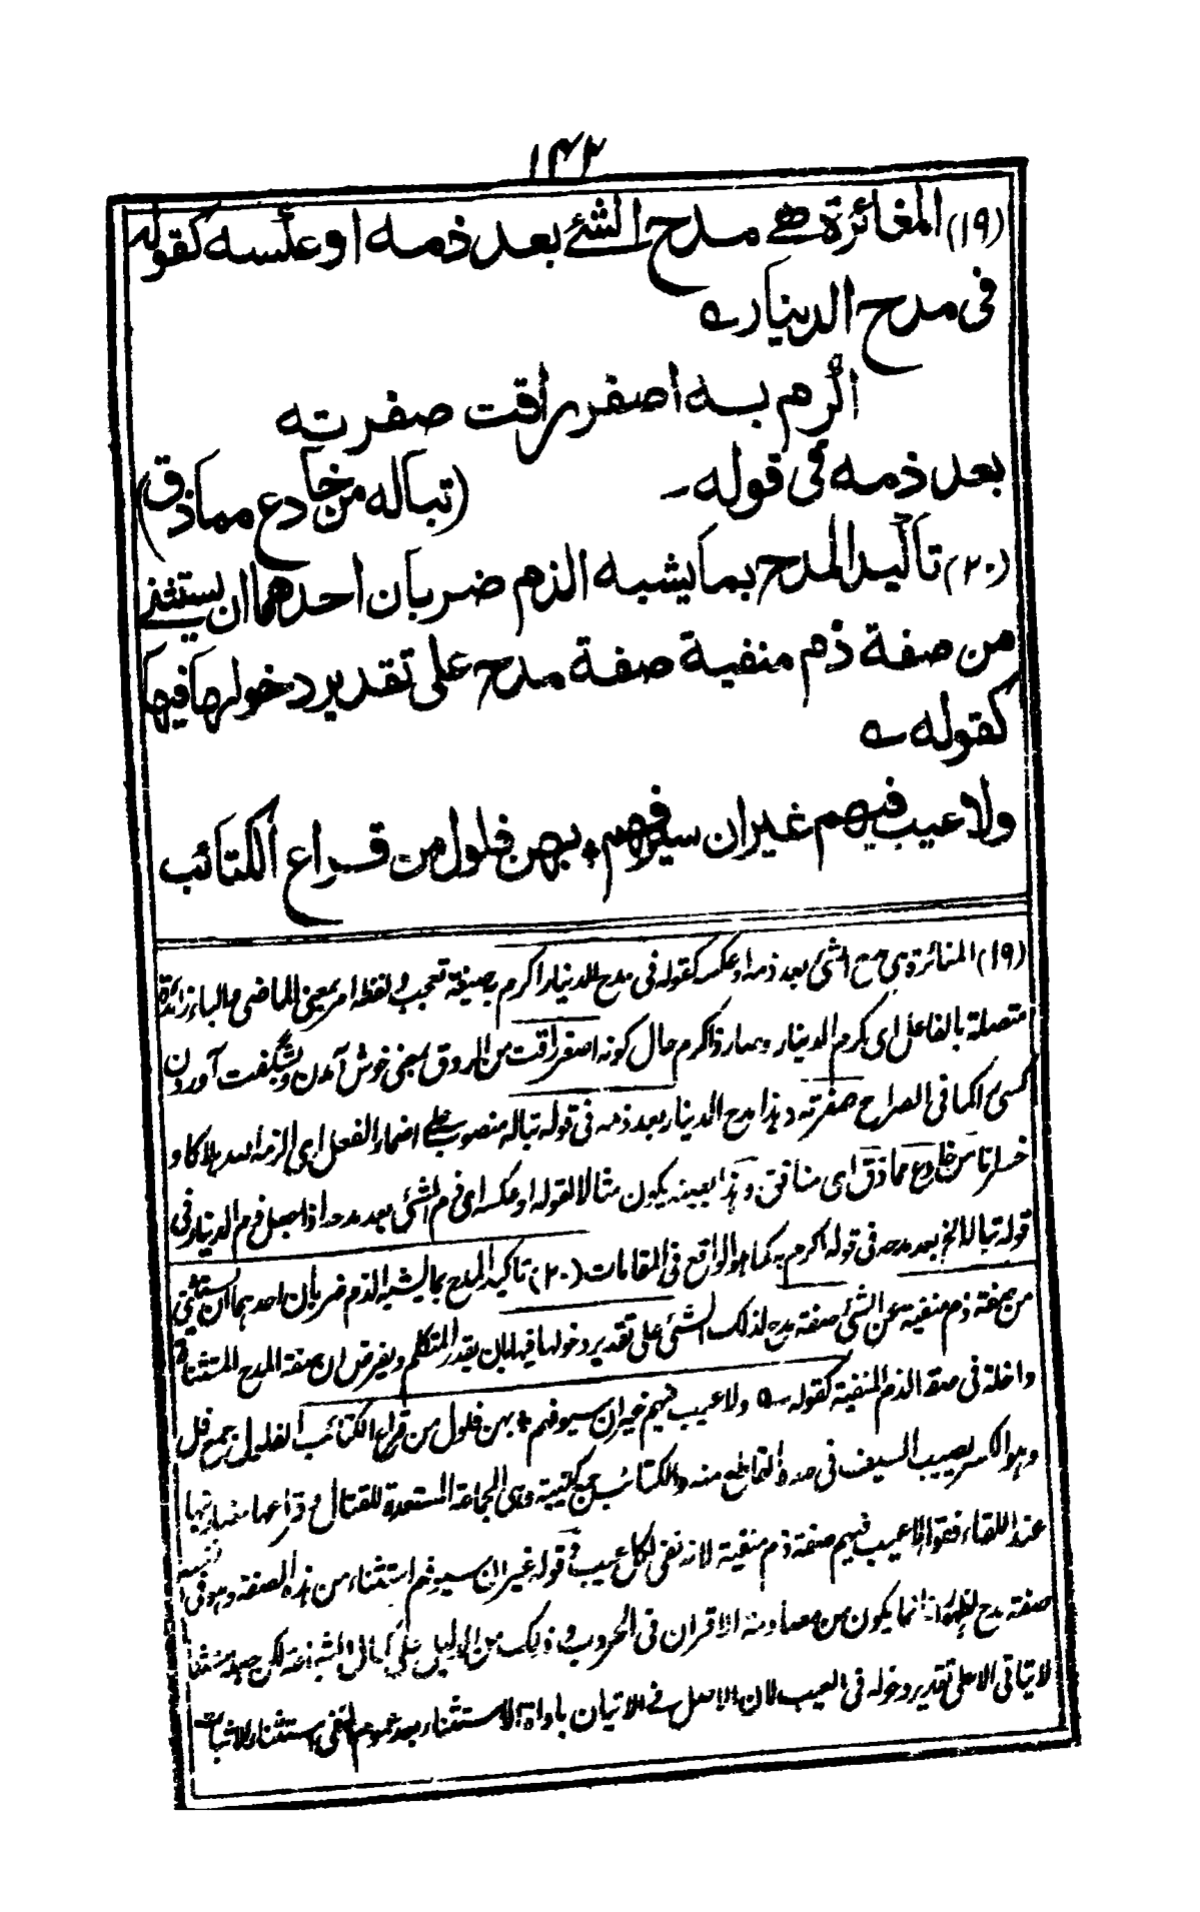 ۱۴۲
(۱۹) المغائرة هے مدح الشئے بعد ذمه او عكسه كقوله
فى مدح الدينار ے
اكرم به اصفر راقت صفرته
بعد ذمه فى قوله۔ (تباله من خادع مماذق)
(۲۰) تاكيد المدح بما يشبه الذم ضربان احدهما ان يستثنے
من صفة ذم منفية صفة مدح على تقدير دخولها فيها
كقوله ے
ولا عيب فيهم غير ان سيوفهم ؞ بهن فلول من قراع الكتائب
(۱۹) المغائرة هى مدح الشئ بعد ذمه او عكسه كقوله فى مدح الدينار اكرم به صيغة تعجب ولفظه امر بمعنى الماضى والباء زائدة
متصلة بالفاعل اى كرم الدينار وصار ذا كرم حال كونه اصفر راقت من الروق بمعنى خوش آمدن وبشگفت آوردن
كسى را كما فى الصراح صفرته وهذا مدح الدينار بعد ذمه فى قوله تباله منصوب على اضمار الفعل اى الزمه الله هلاكا و
خسرانا من خادع مماذق اى منافق وهذا بعينه يكون مثالا لقوله او عكسه اى ذم الشئ بعد مدحه اذا جعل ذم الدينار فى
قوله تباله الخ بعد مدحه فى قوله اكرم به كما هو الواقع فى المقامات (۲۰) تاكيد المدح بما يشبه الذم ضربان احدهما ان يستثنى
من صفة ذم منفية عن الشئ صفة مدح لذلك الشئ على تقدير دخولها فيها بان يقدر المتكلم ويفرض ان صفة المدح المستثناة
داخلة فى صفة الذم المنفية كقوله ے ولا عيب فيهم غير ان سيوفهم ؞ بهن فلول من قراع الكتائب الفلول جمع فل
وهو الكسر يصيب السيف فى حده القاطع منه والكتائب جمع كتيبة وهى الجماعة المستعدة للقتال وقراعها مضاربتها
عند اللقاء فقوله لا عيب فيهم صفة ذم منفية لانه نفى لكل عيب وقوله غير ان سيوفهم استثناء من هذه الصفة وهو فى نفسه
صفة مدح انما يكون من مصادمة الاقران فى الحروب وذلك من الدليل على كمال الشجاعة لكن
لا يتاتى الا على تقدير دخوله فى العيب لان الاصل فى الاتيان باداة الاستثناء بعد عموم النفى استثناء الاثبات